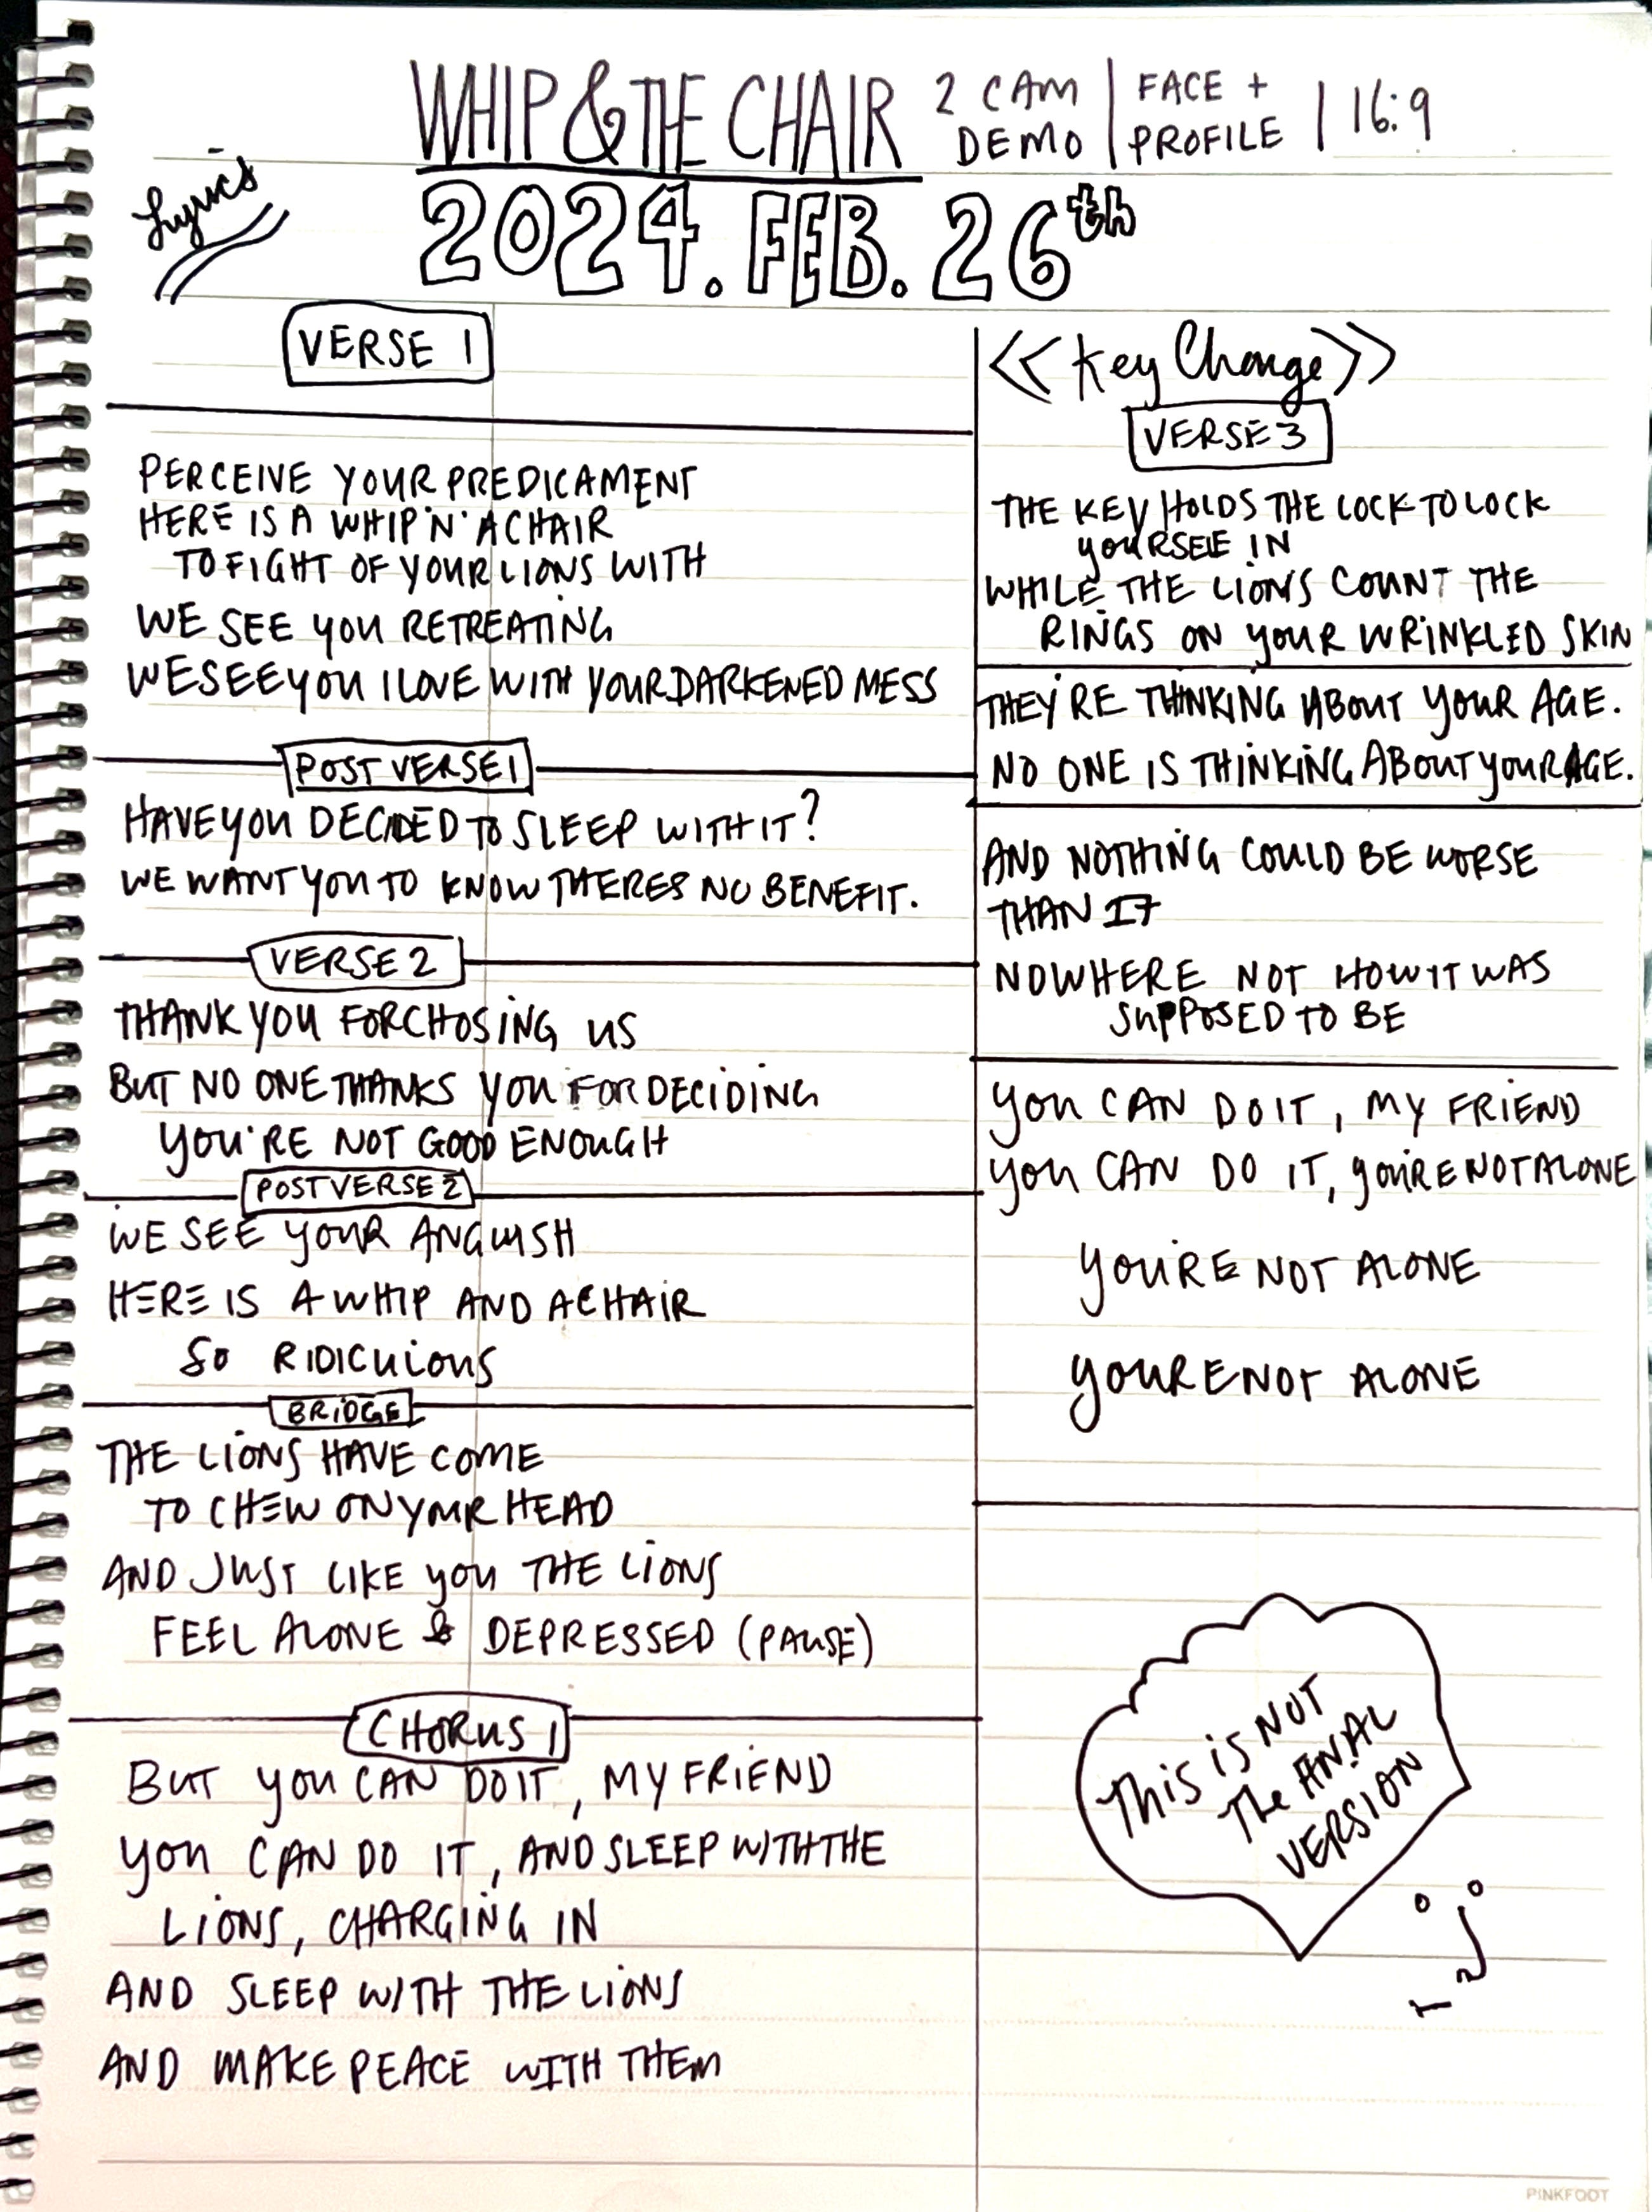 WHIP & THE CHAIR
2 CAM DEMO | FACE + PROFILE | 16:9
Lyrics
2024. FEB. 26th
VERSE 1
PERCEIVE YOUR PREDICAMENT
HERE IS A WHIP 'N' A CHAIR
TO FIGHT OF YOUR LIONS WITH
WE SEE YOU RETREATING
WE SEE YOU I LOVE WITH YOUR DARKENED MESS
POST VERSE 1
HAVE YOU DECIDED TO SLEEP WITH IT?
WE WANT YOU TO KNOW THERES NO BENEFIT.
VERSE 2
THANK YOU FOR CHOSING US
BUT NO ONE THANKS YOU FOR DECIDING
YOU'RE NOT GOOD ENOUGH
POST VERSE 2
WE SEE YOUR ANGUISH
HERE IS A WHIP AND A CHAIR
SO RIDICULOUS
BRIDGE
THE LIONS HAVE COME
TO CHEW ON YOUR HEAD
AND JUST LIKE YOU THE LIONS
FEEL ALONE & DEPRESSED (PAUSE)
CHORUS 1
BUT YOU CAN DO IT, MY FRIEND
YOU CAN DO IT, AND SLEEP WITH THE
LIONS, CHARGING IN
AND SLEEP WITH THE LIONS
AND MAKE PEACE WITH THEM
<<Key Change>>
VERSE 3
THE KEY HOLDS THE LOCK TO LOCK
YOURSELF IN
WHILE THE LIONS COUNT THE
RINGS ON YOUR WRINKLED SKIN
THEY'RE THINKING ABOUT YOUR AGE.
NO ONE IS THINKING ABOUT YOUR AGE.
AND NOTHING COULD BE WORSE
THAN 17
NOWHERE NOT HOW IT WAS
SUPPOSED TO BE
YOU CAN DO IT, MY FRIEND
YOU CAN DO IT, YOU'RE NOT ALONE
YOU'RE NOT ALONE
YOURE NOT ALONE
THIS IS NOT
THE FINAL
VERSION
PINKFOOT